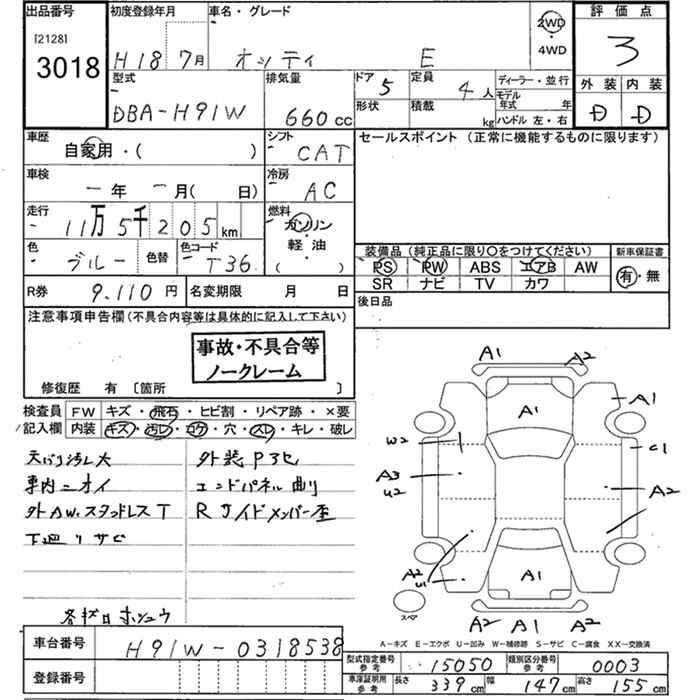 出品番号
[2128]
3018
初度登録年月
H18 7月
車名・グレード
オッティ E
2WD
・
4WD
評価点
3
型式
DBA-H91W
排気量
660cc
ドア
5
定員
4人
形状
積載
kg
ディーラー・並行
モデル年式 年
ハンドル 左・右
外装 内装
D D
車歴
自家用・( )
シフト
CAT
セールスポイント (正常に機能するものに限ります)
車検
一年 一月(日)
冷房
AC
走行
11万5千205km
燃料
ガソリン
軽・油
( )
色
ブルー
色替
色コード
T36
装備品(純正品に限り○をつけてください)
PS PW ABS エアB AW
SR ナビ TV カワ
新車保証書
有・無
R券 9,110円
名変期限 月 日
後日品
注意事項申告欄(不具合内容等は具体的に記入して下さい)
事故・不具合等
ノークレーム
修復歴 有 〔箇所 〕
検査員 FW キズ・飛石・ヒビ割・リペア跡・×要
記入欄 内装 キズ・汚レ・コゲ・穴・スレ・キレ・破レ
天バリ汚レ大
車内ニオイ
外AW.スタッドレスT
下廻リサビ
外装P3セ
エンドパネル曲リ
Rサイドメンバー歪
A1 A2
A1 A1
W2 C1
A3
U2
A2
A2
U1
A1
スペア
A2 A1 A2
A-キズ E-エクボ U-凹み W-補修跡 S-サビ C-腐食 XX-交換済
車台番号 H91W-0318538
登録番号
型式指定番号 参考 15050
類別区分番号 参考 0003
車庫証明用 参考 長さ 339cm 幅 147cm 高さ 155cm